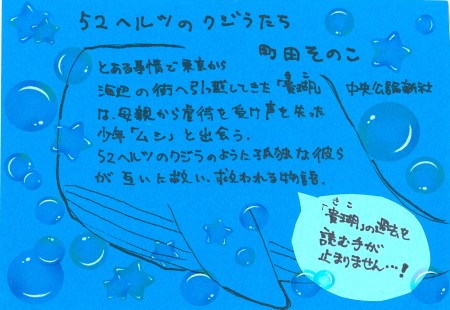 52ヘルツのクジラたち
町田そのこ
中央公論新社
とある事情で東京から
海辺の街へ引っ越してきた「貴瑚」
きこ
は、母親から虐待を受け声を失った
少年「ムシ」と出会う。
52ヘルツのクジラのように孤独な彼ら
が互いに救い、救われる物語。
きこ
「貴瑚」の過去を
読む手が
止まりません…!